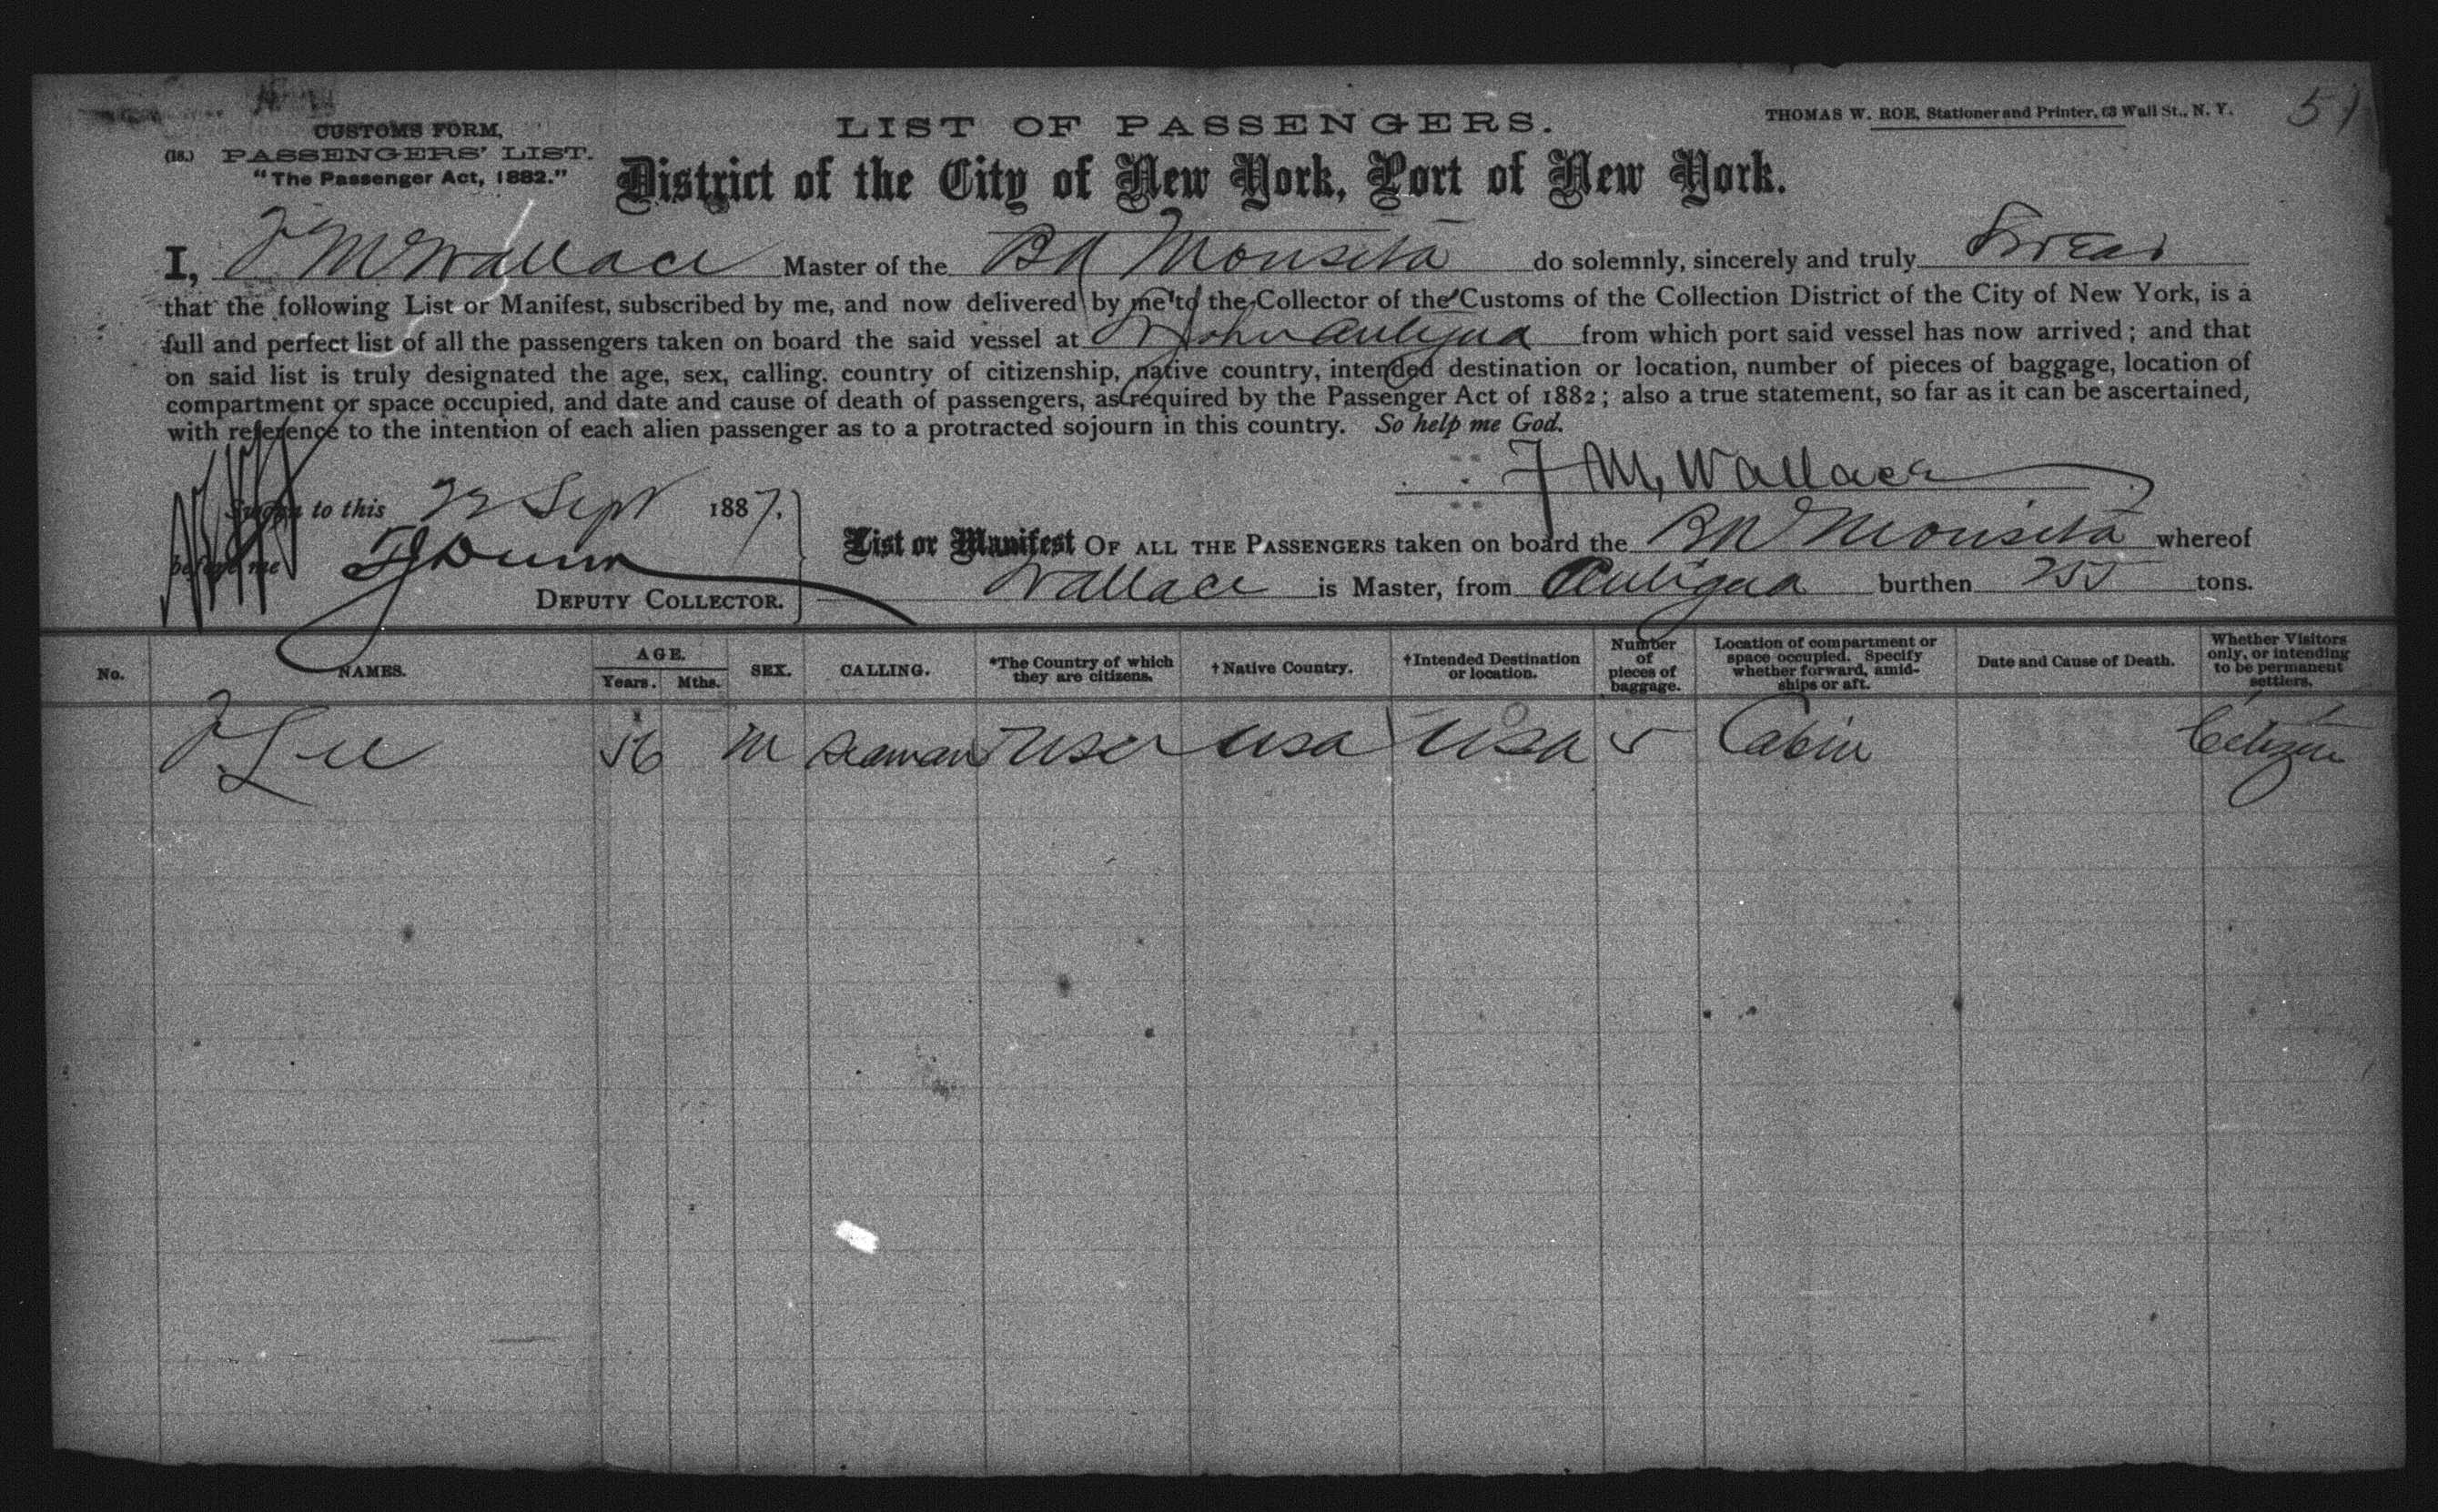 CUSTOMS FORM,
(18.) PASSENGERS' LIST.
"The Passenger Act, 1882."
LIST OF PASSENGERS.
THOMAS W. ROE, Stationer and Printer, 63 Wall St., N. Y.
51
District of the City of New York, Port of New York.
I, F M Wallace Master of the Monsita do solemnly, sincerely and truly Swear
that the following List or Manifest, subscribed by me, and now delivered by me to the Collector of the Customs of the Collection District of the City of New York, is a
full and perfect list of all the passengers taken on board the said vessel at St John Antigua from which port said vessel has now arrived; and that
on said list is truly designated the age, sex, calling, country of citizenship, native country, intended destination or location, number of pieces of baggage, location of
compartment or space occupied, and date and cause of death of passengers, as required by the Passenger Act of 1882; also a true statement, so far as it can be ascertained,
with reference to the intention of each alien passenger as to a protracted sojourn in this country. So help me God.
F M, Wallace
Sworn to this 22 Sept 1887.
before me
DEPUTY COLLECTOR.
List or Manifest OF ALL THE PASSENGERS taken on board the Monsita whereof
Wallace is Master, from Antigua burthen 255 tons.
No. NAMES. AGE. Years. Mths. SEX. CALLING. *The Country of which they are citizens. †Native Country. †Intended Destination or location. Number of pieces of baggage. Location of compartment or space occupied. Specify whether forward, amidships or aft. Date and Cause of Death. Whether Visitors only, or intending to be permanent settlers.
F Lee 56 M Seaman USA USA USA 5 Cabin Citizen